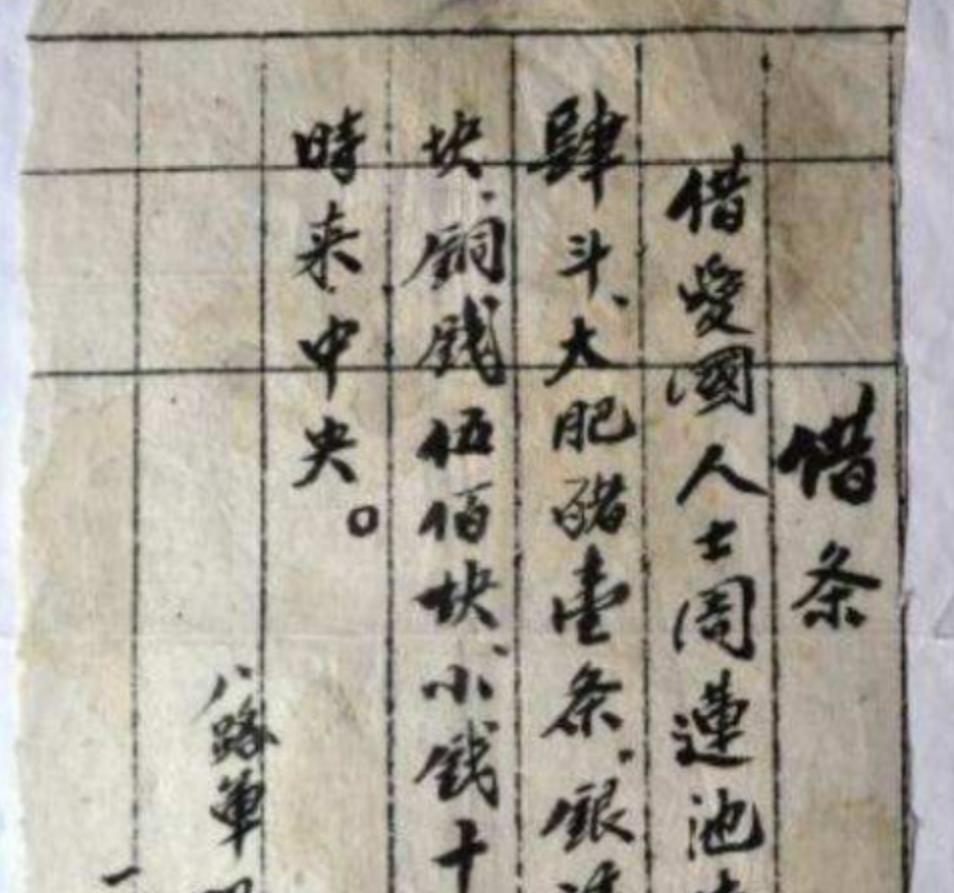 借条
借愛國人士周連池
肆斗、大肥猪壹条、銀
块、銅钱伍佰块、小钱十
時来中央。
八路軍
一